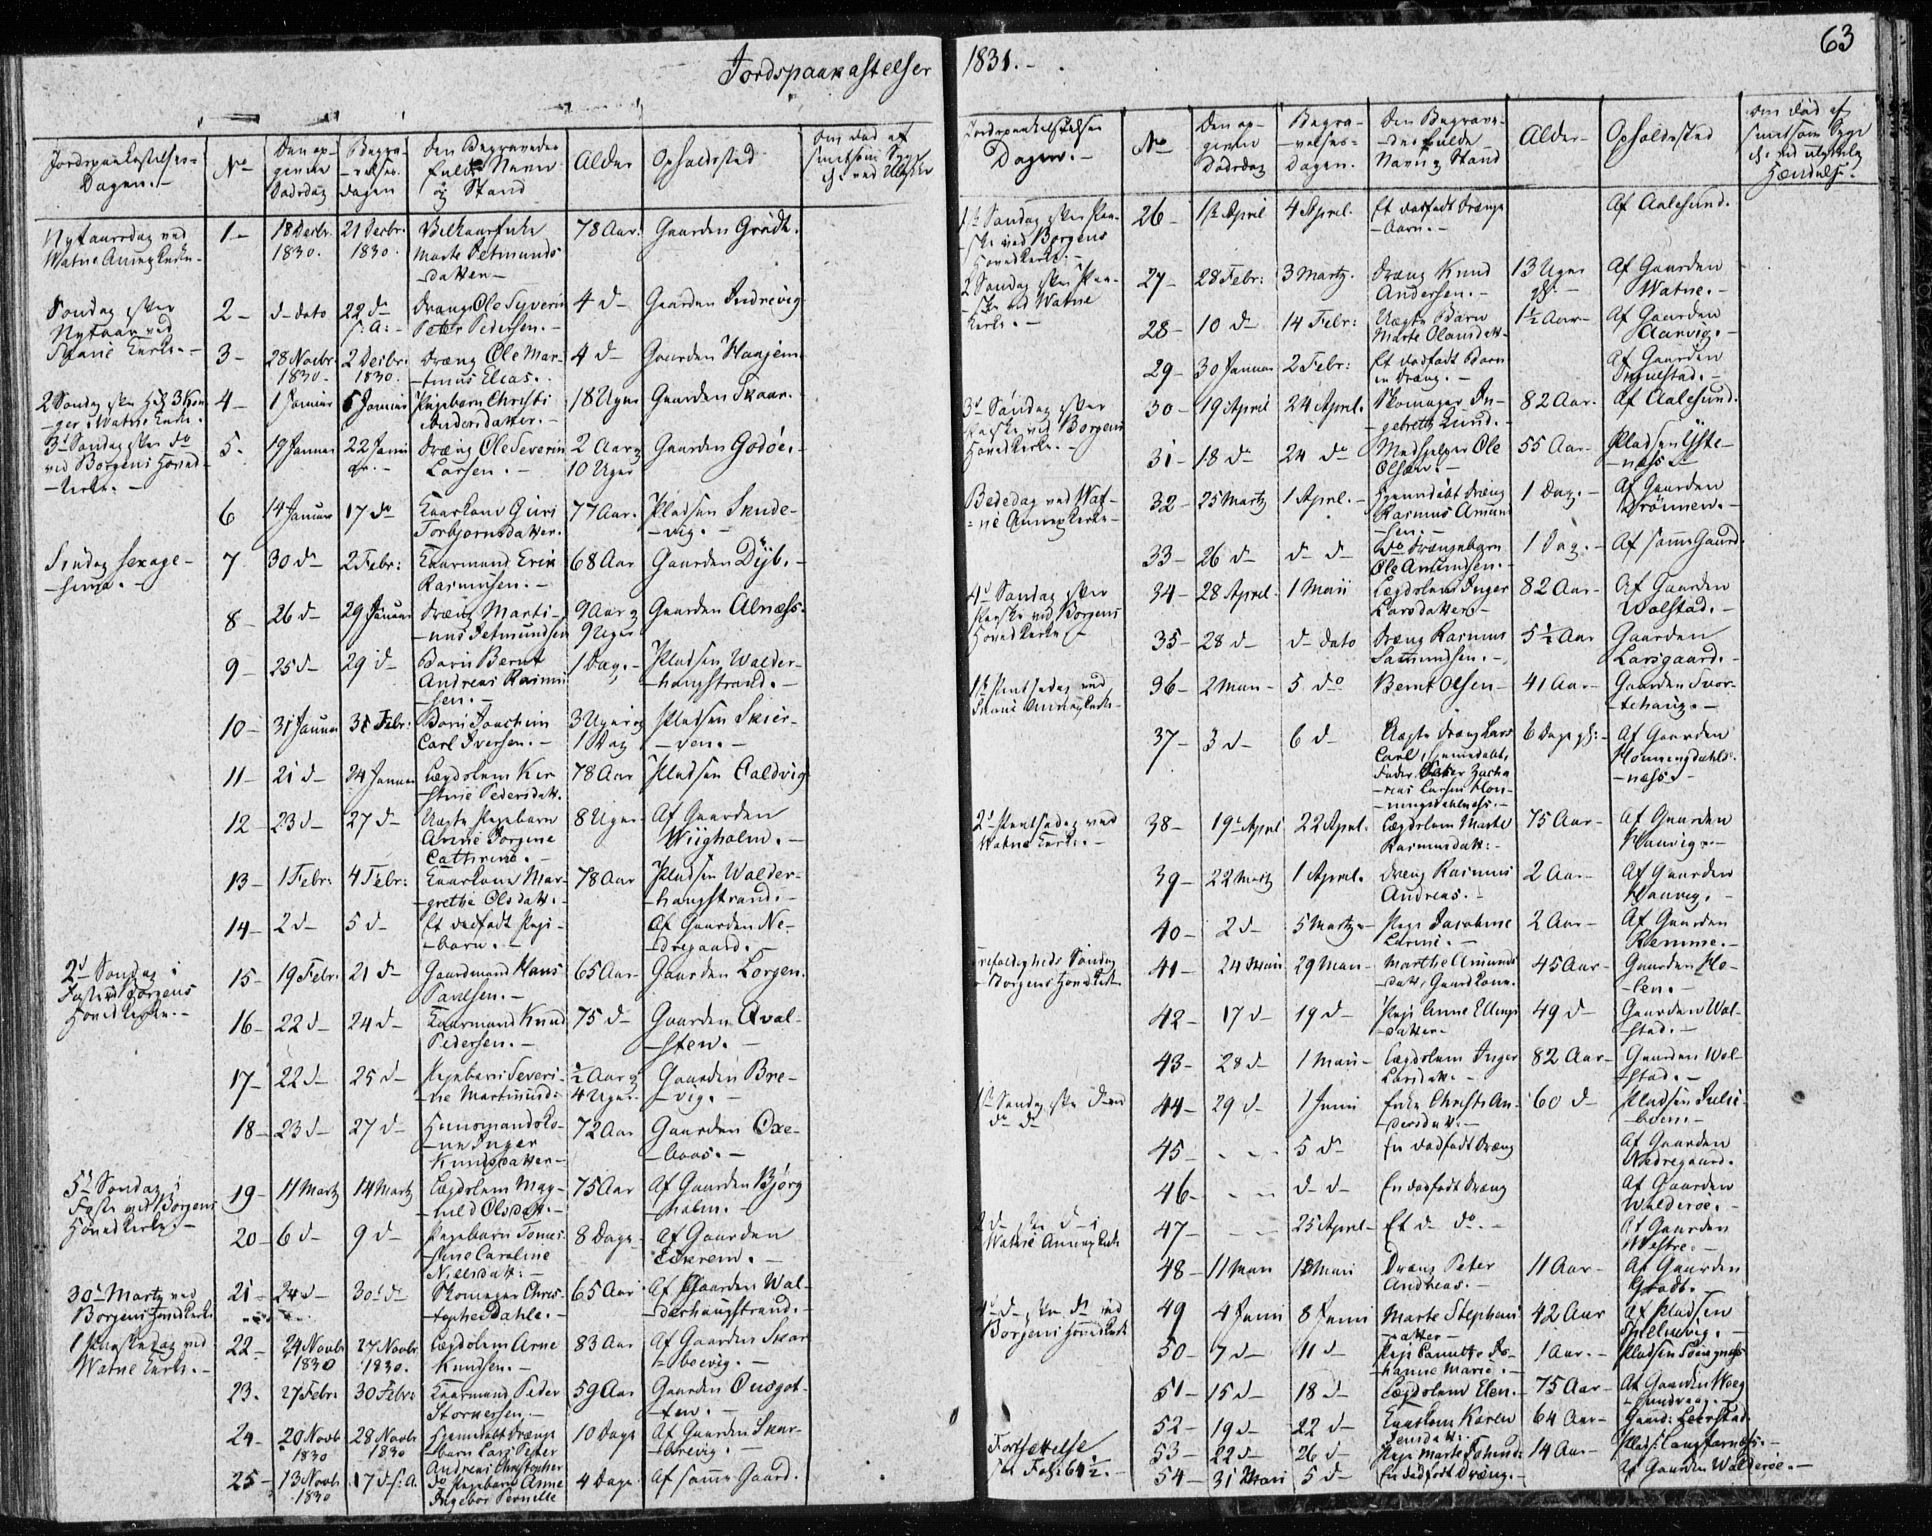 63
Jordspaakastelser 1831.
Jordspaakastelses-
Dagen.
No
Den op-
given
Dødsdag
Begra-
velses-
dagen
Den Begravedes
fulde Navn
og Stand
Alder
Opholdssted
Nytaarsdag ved
Watne
1
18 Decbr.
1830.
21 Decbr.
1830.
Marte Petmunds-
datter
78 Aar.
Gaarden Grødt.
Søndag efter
Nytaar ved
2
d- dato
22 d-
Dreng Ole Syverin
Peter Pedersen.
4 d-
Gaarden Indrevig
3
28 Novbr.
1830.
2 Decbr.
1830.
Dreng Ole Mar-
tinus Elias.
4 d-
Gaarden Haajem
4
1 Januar
5 Januar
Pigebarn Christi
Andersdatter.
18 Uger
Gaarden Skaar.
3d Søndag efter do
ved Borgens Hoved-
Kirke.
5.
19 Januar
22 Janu
ar.
Dreng Ole Severin
Larsen.
2 Aar og
10 Uger
Gaarden Godøe.
6
14 Januar
17 do
Guri
Torbjørnsdatter.
77 Aar.
Pladsen Skude-
vig.
Søndag Sexage-
sima.
7
30 d-
2 Febr:
Kaarmand Erik
Rasmusen.
68 Aar
Gaarden Dyb.
8
26 d-
29 Januar
Dreng Marti-
nus Petmundsen
9 Aar og
9 Uger
Gaarden Alnæss.
9
25 d-
29 d-
Barn Bernt
Andreas Rasmu-
sen.
1 Dag.
Pladsen Walder-
haugstrand.
10
31 Januar
3 Febr.
Barn Joachim
Carl Iversen.
3 Uger og
1 Dag
Pladsen Skier-
ven.
11
21 d-
24 Januar
Lægdslem Kir-
stine Pedersdatt.
78 Aar
Pladsen Caldvig
12
23 d-
27 d-
Uægte Pigebarn
Anne Jørgine
Cathrine.
8 Uger
Af Gaarden
Wiigholm.
13
1 Febr:
4 Febr:
Kaarkone Mar-
grethe Olsdatt.
78 Aar
Pladsen Walder-
haugstrand.
14
2 d-
5 d-
Et dødfødt Pige-
barn.
Af Gaarden Ne-
dregaard.
2d Søndag i
Faste ved Borgens
Hovedkirke.
15
19 Febr.
21 d-
Gaardmand Hans
Paulsen.
65 Aar
Gaarden Lorgen.
16
22 d-
24 d-
Kaarmand Knud
Pedersen.
75 d-
Gaarden Qval-
steen.
17
22 d-
25 d-
Pigebarn Severi-
ne Martinusd:
½ Aar og
4 Uger
Gaarden Bre-
vig.
18
23 d-
27 d-
Huusmandsko-
ne Inger
Knudsdatter
72 Aar
Gaarden Oxe-
baas.
5t Søndag i
Faste ved Borgens
Hovedkirke.
19
11 Martz
14 Martz
Lægdslem Mag-
hild Olsdatt.
75 Aar
Af Gaarden Bjørg-
holm.
20
6 d-
9 d-
Pigebarn Tomas-
sine Caroline
Nilsdatt:
8 Dage
Af Gaarden
Eserem.
30d Martz ved
Borgens Hovedkirke
21
24 d-
30d d-
Skomager Chris-
topher Dahle.
65 Aar
Af Gaarden Wal-
derhaugstrand.
1 Paaskedag ved
Watne Kirke.
22
24 Novbr
1830
27 Novbr
1830.
Lægdslem Arne
Knudsen.
83 Aar
Af Gaarden Skar-
boevig.
23.
27 Febr:
30 Febr:
Kaarmand Peder
Størkersen.
59 Aar
Gaarden Ousgot-
ten.
24
20 Novbr
1830
28 Novbr
1830
Hjemdøbt Drenge-
barn Lars Petter
Andreas Christopher
10 Dage
Af Gaarden Skar-
brevig.
25
13 Novbr
1830
17 d- s: A.
do Pigebarn Anne
Ingebor Pernille
4 Dage
Af samme Gaard.
Dagen.
No
Den op-
given
Dødsdag
Begra-
velses-
Dagen.
Den Begrave-
des fulde
Navn og Stand
Alder
Opholdssted
1st Søndag efter Paa-
ske ved Borgens
Hovedkirke.
26
1ste April
4 April.
Et dødfødt Drenge
Barn.
Af Aalesund.
2 Søndag efter Paa-
ske ved Watne
Kirke.
27
28 Febr:
3 Martz.
Dreng Knud
Andersen.
13 Uger
Af Gaarden
Watne.
28
10 d-
14 Febr:
Uægte Barn
Marte Olausdatt.
1½ Aar
Af Gaarden
Aarvig.
29
30 Januar
2 Febr:
Et dødfødt Barn
en Dreng.
Af Gaarden
3d Søndag efter
Paaske ved Borgens
Hovedkirke.
30
19 April
24 April.
Skomager In-
gebregt Lund.
82 Aar.
Af Aalesund.
31
18 do
24 do
Ole
Olsen.
55 Aar
Pladsen Yste-
næss.
Bededag ved Wat-
ne Annexkirke
32
25 Martz
1 April.
Hjemdøbt Dreng
Rasmus Amund-
sen.
1 Dag.
Af Gaarden
Drønnen.
33
26 d-
d- d-
do Drengebarn
Ole Amundsen.
1 Dag.
Af samme Gaard.
4d Søndag efter
Paaske ved Borgens
Hovedkirke
34
28 April
1 Maii
Lægdslem Inger
Larsdatter
82 Aar
Af Gaarden
Wolstad.
35
28 d-
d- dato
Dreng Rasmus
Samundsen.
5½ Aar
Gaarden
Larsgaard.
1ste Pintsedag ved
36
2 Maii
5 do
Bernt Olsen
41 Aar
Gaarden Svor-
tehaug.
37
3 d-
6 d-
Uægte Dreng Lars
Carl, hjemmedøbt,
Fader Peter Zacha-
rias Larsen Hon-
ningsdahlnæss.
6 Dage gl:
Af Gaarden
Honningdahls-
næss
2d Pintsedag ved
Watne Kirke.
38
19 April
22 April.
Lægdslem Marte
Rasmusdatt:
75 Aar
Af Gaarden
Haavig.
39
22 Martz
1 April.
Dreng Rasmus
Andreas.
2 Aar
Af Gaarden
Haavig.
40
2 d-
5 Martz
Pige Jacobine
Larine.
2 Aar
Af Gaarden
Remme.
Trefoldigheds Søndag
41
24 Maii
29 Maii
Marthe Amunds-
datt, Gaardkone.
45 Aar
Gaarden Ple-
len.
42
17 d-
19 d-
Pige Anne Ellings-
datter
49 d-
Gaarden Wol-
stad.
43
28 d-
1 Maii
Lægdslem Inger
Larsdatt.
82 Aar
Gaarden Wol-
stad.
1st Søndag efter
do do
44
29 d-
1 Junii
Enke Christi An-
dersdatt.
60 d-
Pladsen Julie-
boen.
45
5 d-
En dødfødt Dreng
Af Gaarden
Nedregaard.
46
d- d-
En dødfødt Dreng
Af Gaarden
Walderøe.
2 d- efter d- i
Watne Annexkirke
47
25 April
Et d- do.
Af Gaarden
Westre.
48
11 Maii
18 Maii
Dreng Peter
Andreas.
11 Aar
Af Gaarden
Grødt.
4d d- efter do ved
Borgens Hovedkirke
49
4 Junii
8 Junii
Marte Stephans-
datter
42 Aar
Af Pladsen
Spielnevig.
50
7 d-
11 d-
Pige Jo-
hanne Marie.
1 Aar.
51
15 d-
18 d-
Lægdslem Elen.
75 Aar
Af Gaarden
52
19 d-
22 d-
Kaarkone Karen
Jensdatt.
64 Aar
Gaard: Leerstad.
Fortsættelse
see Fol: 64½.
53
22 d-
26 d-
Pige Marte Johansd:
14 Aar
Plads: Langtarnæss.
54
31 Maii
5 d-
En dødfødt Dreng.
Af Gaarden Walderøe.